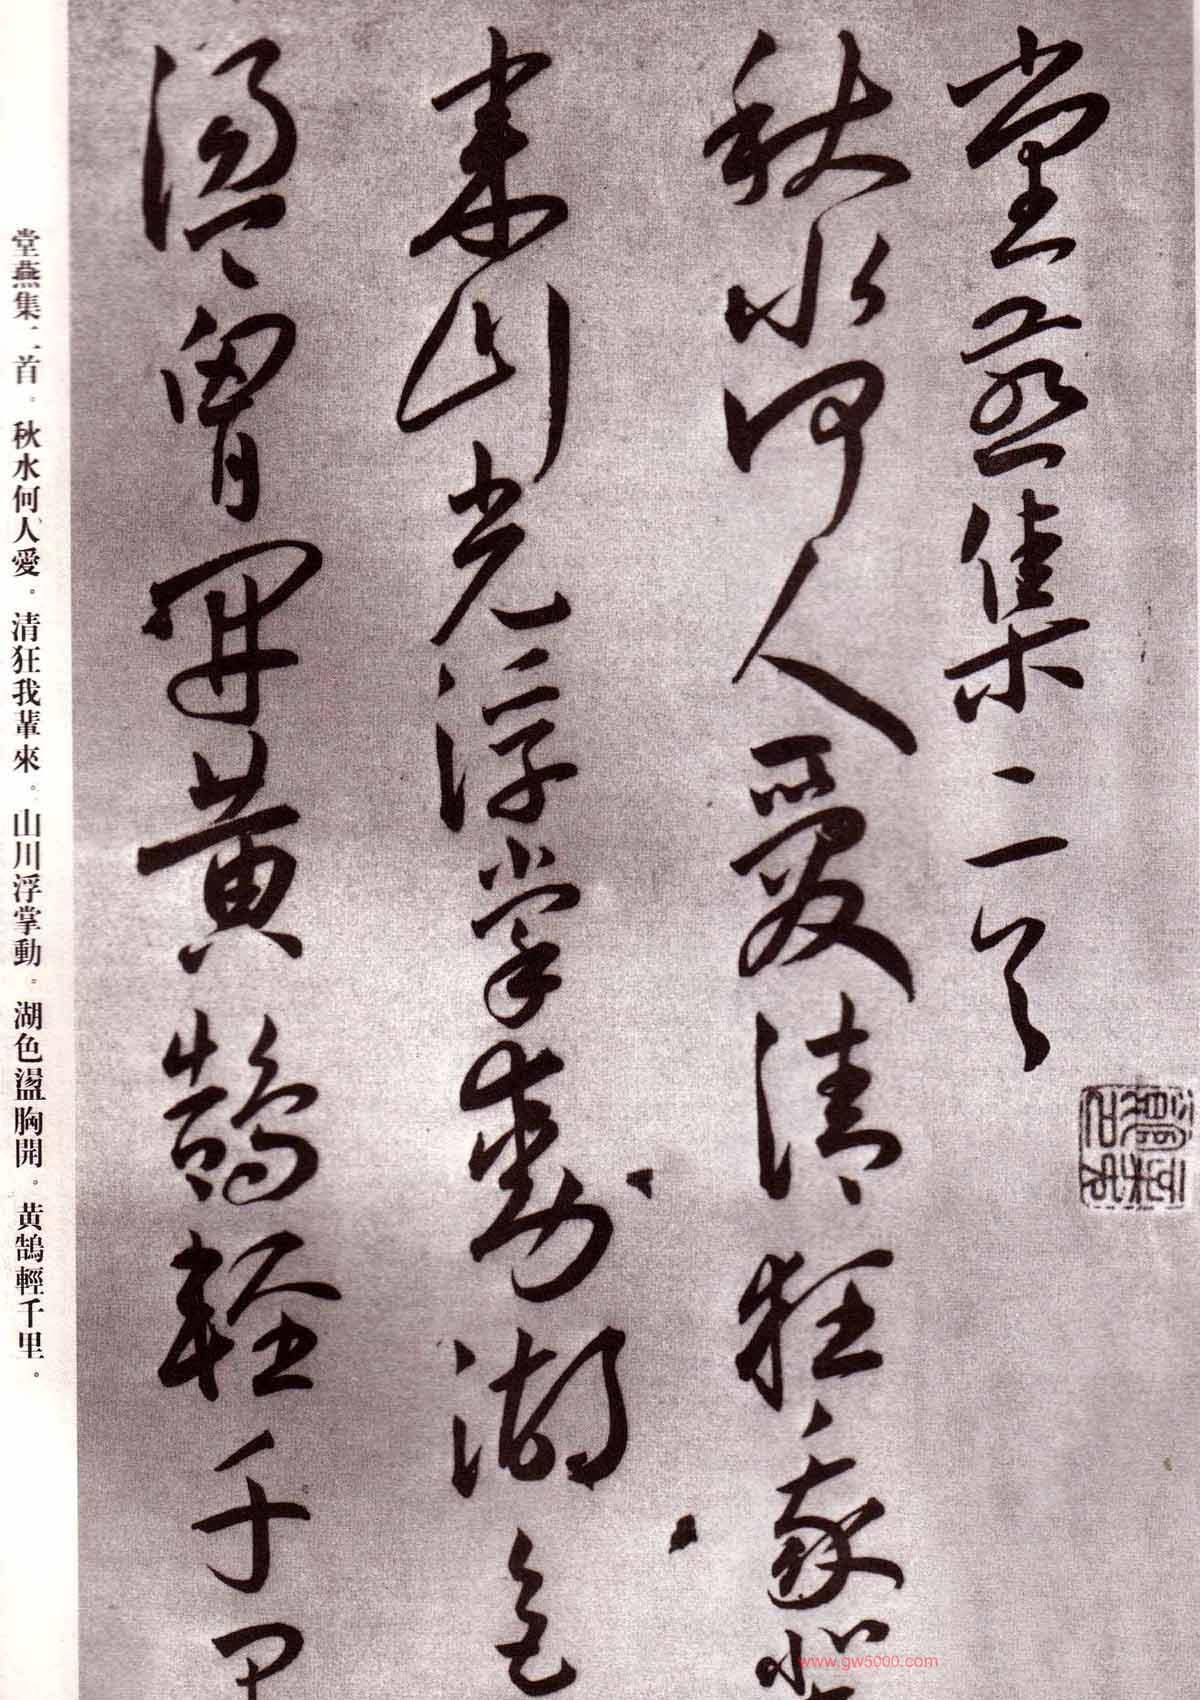 堂燕集二首
秋水何人愛清狂我輩
來山光浮掌動湖色
盪胷開黃鵠輕千里
堂燕集二首。秋水何人愛。清狂我輩來。山川浮掌動。湖色盪胸開。黃鵠輕千里。
www.gw5000.com